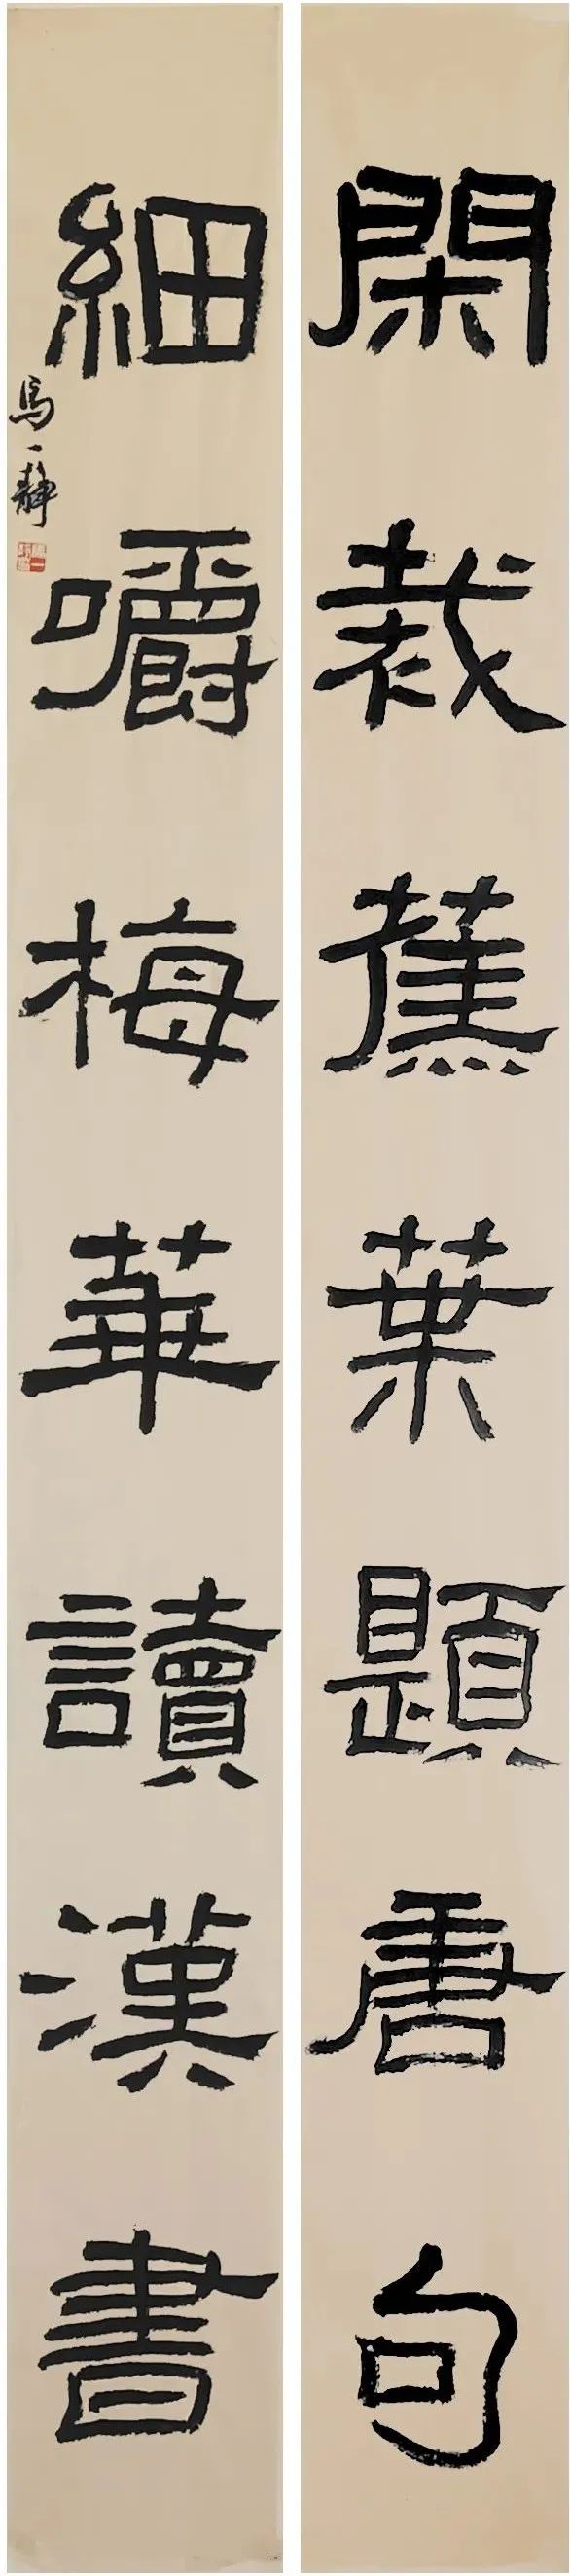 閑裁蕉葉題唐句
細嚼梅華讀漢書
馬一靜